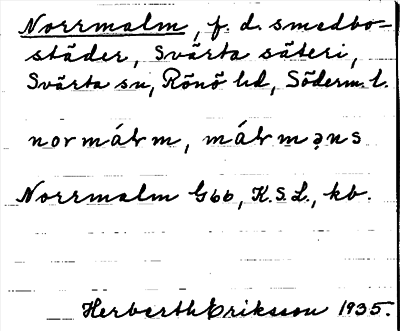 Norrmalm, f. d. smedbo-
städer, Svärta säteri,
Svärta sn, Rönö hd, Söderm. l.
normáłm, máłməns
Norrmalm Gbb, K.S.L., kb.
Herbert Eriksson 1935.